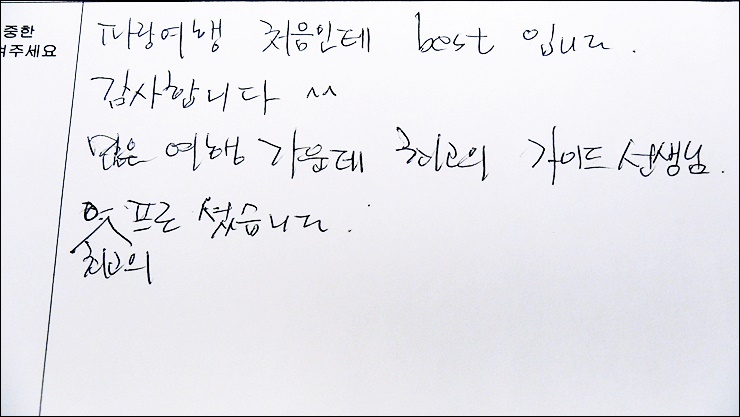 중한
겨주세요
파랑여행 처음인데 best 입니다.
감사합니다 ^^
많은 여행 가운데 최고의 가이드 선생님.
프로 셨습니다.
최고의